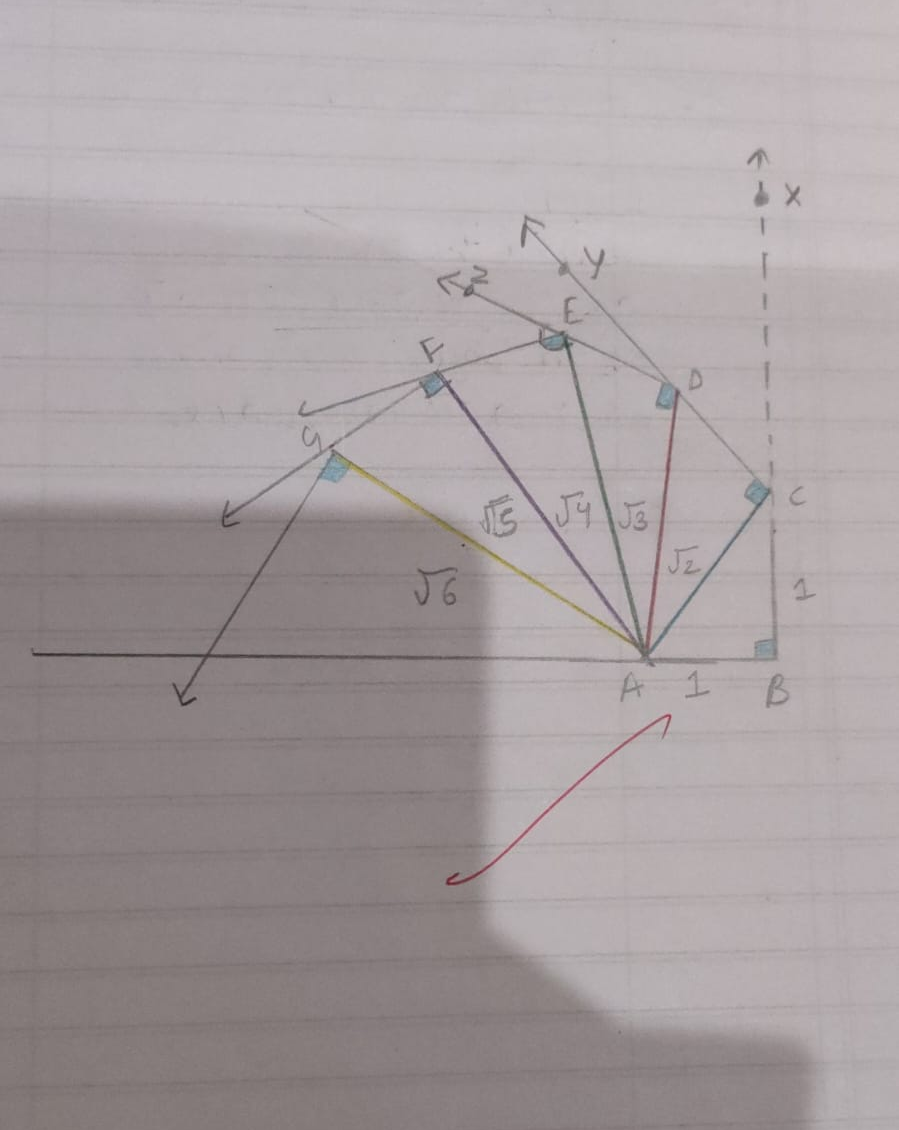 X
Y
Z
E
F
D
G
C
√5
√4
√3
√2
√6
1
A
1
B